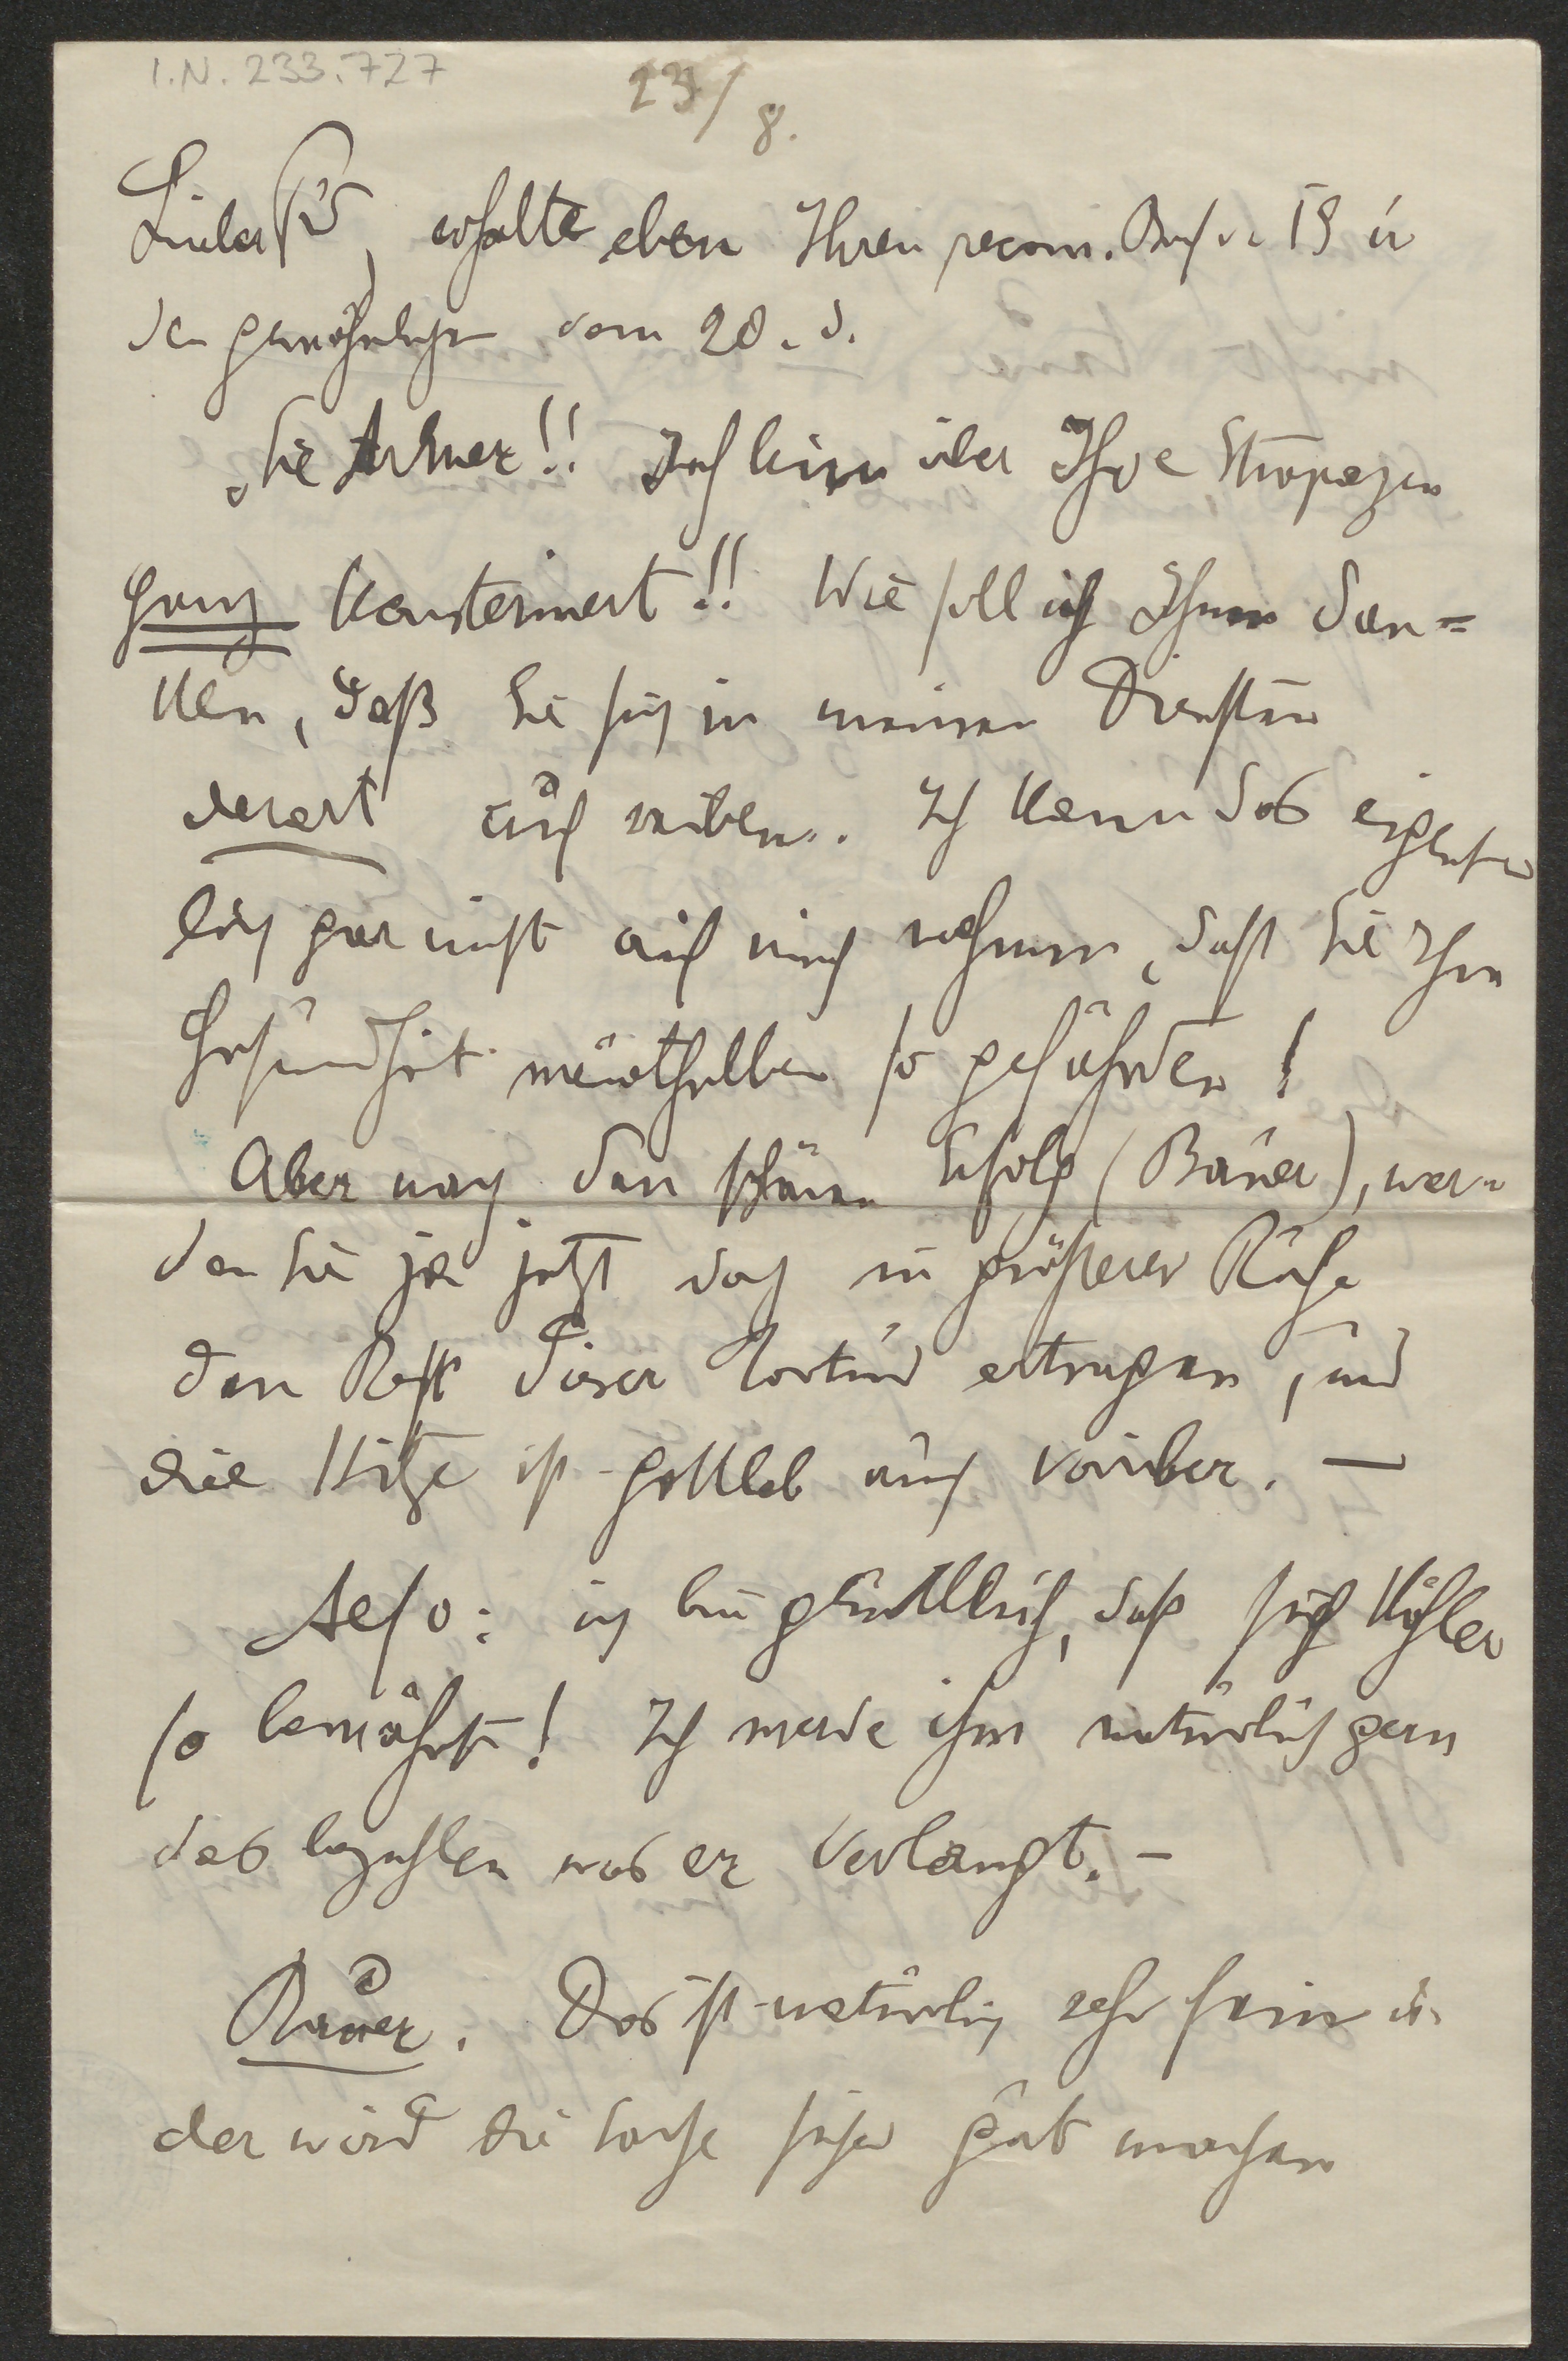 I.N. 233.727
23/8.
Lieber erhalte eben Ihren recom. Brief v. 19 u
den gewöhnlichen vom 20. d.
Sie Armer!! Ich bin über Ihre Strapazen
ganz konsterniert!! Wie soll ich Ihnen dan=
ken, daß Sie sich in meinen Diensten
derart aufreiben. Ich kann das
lich gar nicht auf mich nehmen, daß Sie Ihre
Gesundheit meinethalben so gefährden!
Aber nach dem schönen Erfolg (Bauer), wer-
den Sie ja jetzt doch in größerer Ruhe
den Rest dieser Tortur ertragen, und
die Hitze ist gottlob auch vorüber. —
Also: ich bin glücklich, daß sich Köhler
so bewährt! Ich werde ihm natürlich gern
das bezahlen was er verlangt. –
Bauer. Das ist natürlich sehr fein u.
der wird die Sache sicher gut machen